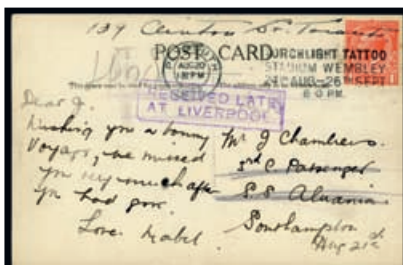 139 Clinton St. Toronto
POST CARD
TORCHLIGHT TATTOO
STADIUM WEMBLEY
AUG 20
RECEIVED LATE
AT LIVERPOOL
Dear J.
Wishing you a bonny
Voyage, we missed
you very much after
you had gone.
Love. Mabel.
Mr J Chambers.
3rd C. Passenger
S.S. Aluania
Southampton
Aug 21st